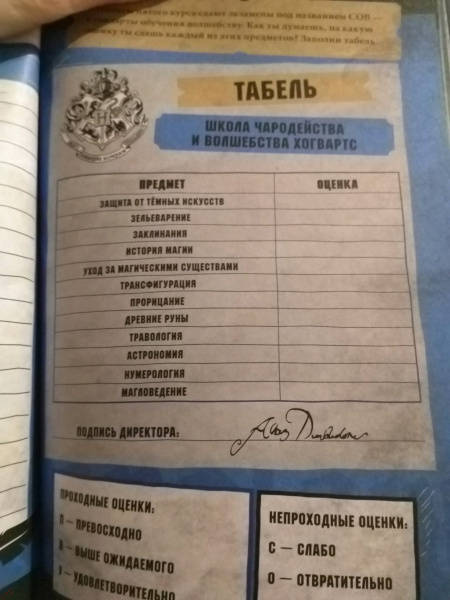 пятого курса сдают экзамены под названием СОВ —
обучения волшебству. Как ты думаешь, на какую
ты сдашь каждый из этих предметов? Заполни табель
ТАБЕЛЬ
ШКОЛА ЧАРОДЕЙСТВА
И ВОЛШЕБСТВА ХОГВАРТС
ПРЕДМЕТ ОЦЕНКА
ЗАЩИТА ОТ ТЁМНЫХ ИСКУССТВ
ЗЕЛЬЕВАРЕНИЕ
ЗАКЛИНАНИЯ
ИСТОРИЯ МАГИИ
УХОД ЗА МАГИЧЕСКИМИ СУЩЕСТВАМИ
ТРАНСФИГУРАЦИЯ
ПРОРИЦАНИЕ
ДРЕВНИЕ РУНЫ
ТРАВОЛОГИЯ
АСТРОНОМИЯ
НУМЕРОЛОГИЯ
МАГЛОВЕДЕНИЕ
ПОДПИСЬ ДИРЕКТОРА:
ПРОХОДНЫЕ ОЦЕНКИ:
П — ПРЕВОСХОДНО
В — ВЫШЕ ОЖИДАЕМОГО
У — УДОВЛЕТВОРИТЕЛЬНО
НЕПРОХОДНЫЕ ОЦЕНКИ:
С — СЛАБО
О — ОТВРАТИТЕЛЬНО